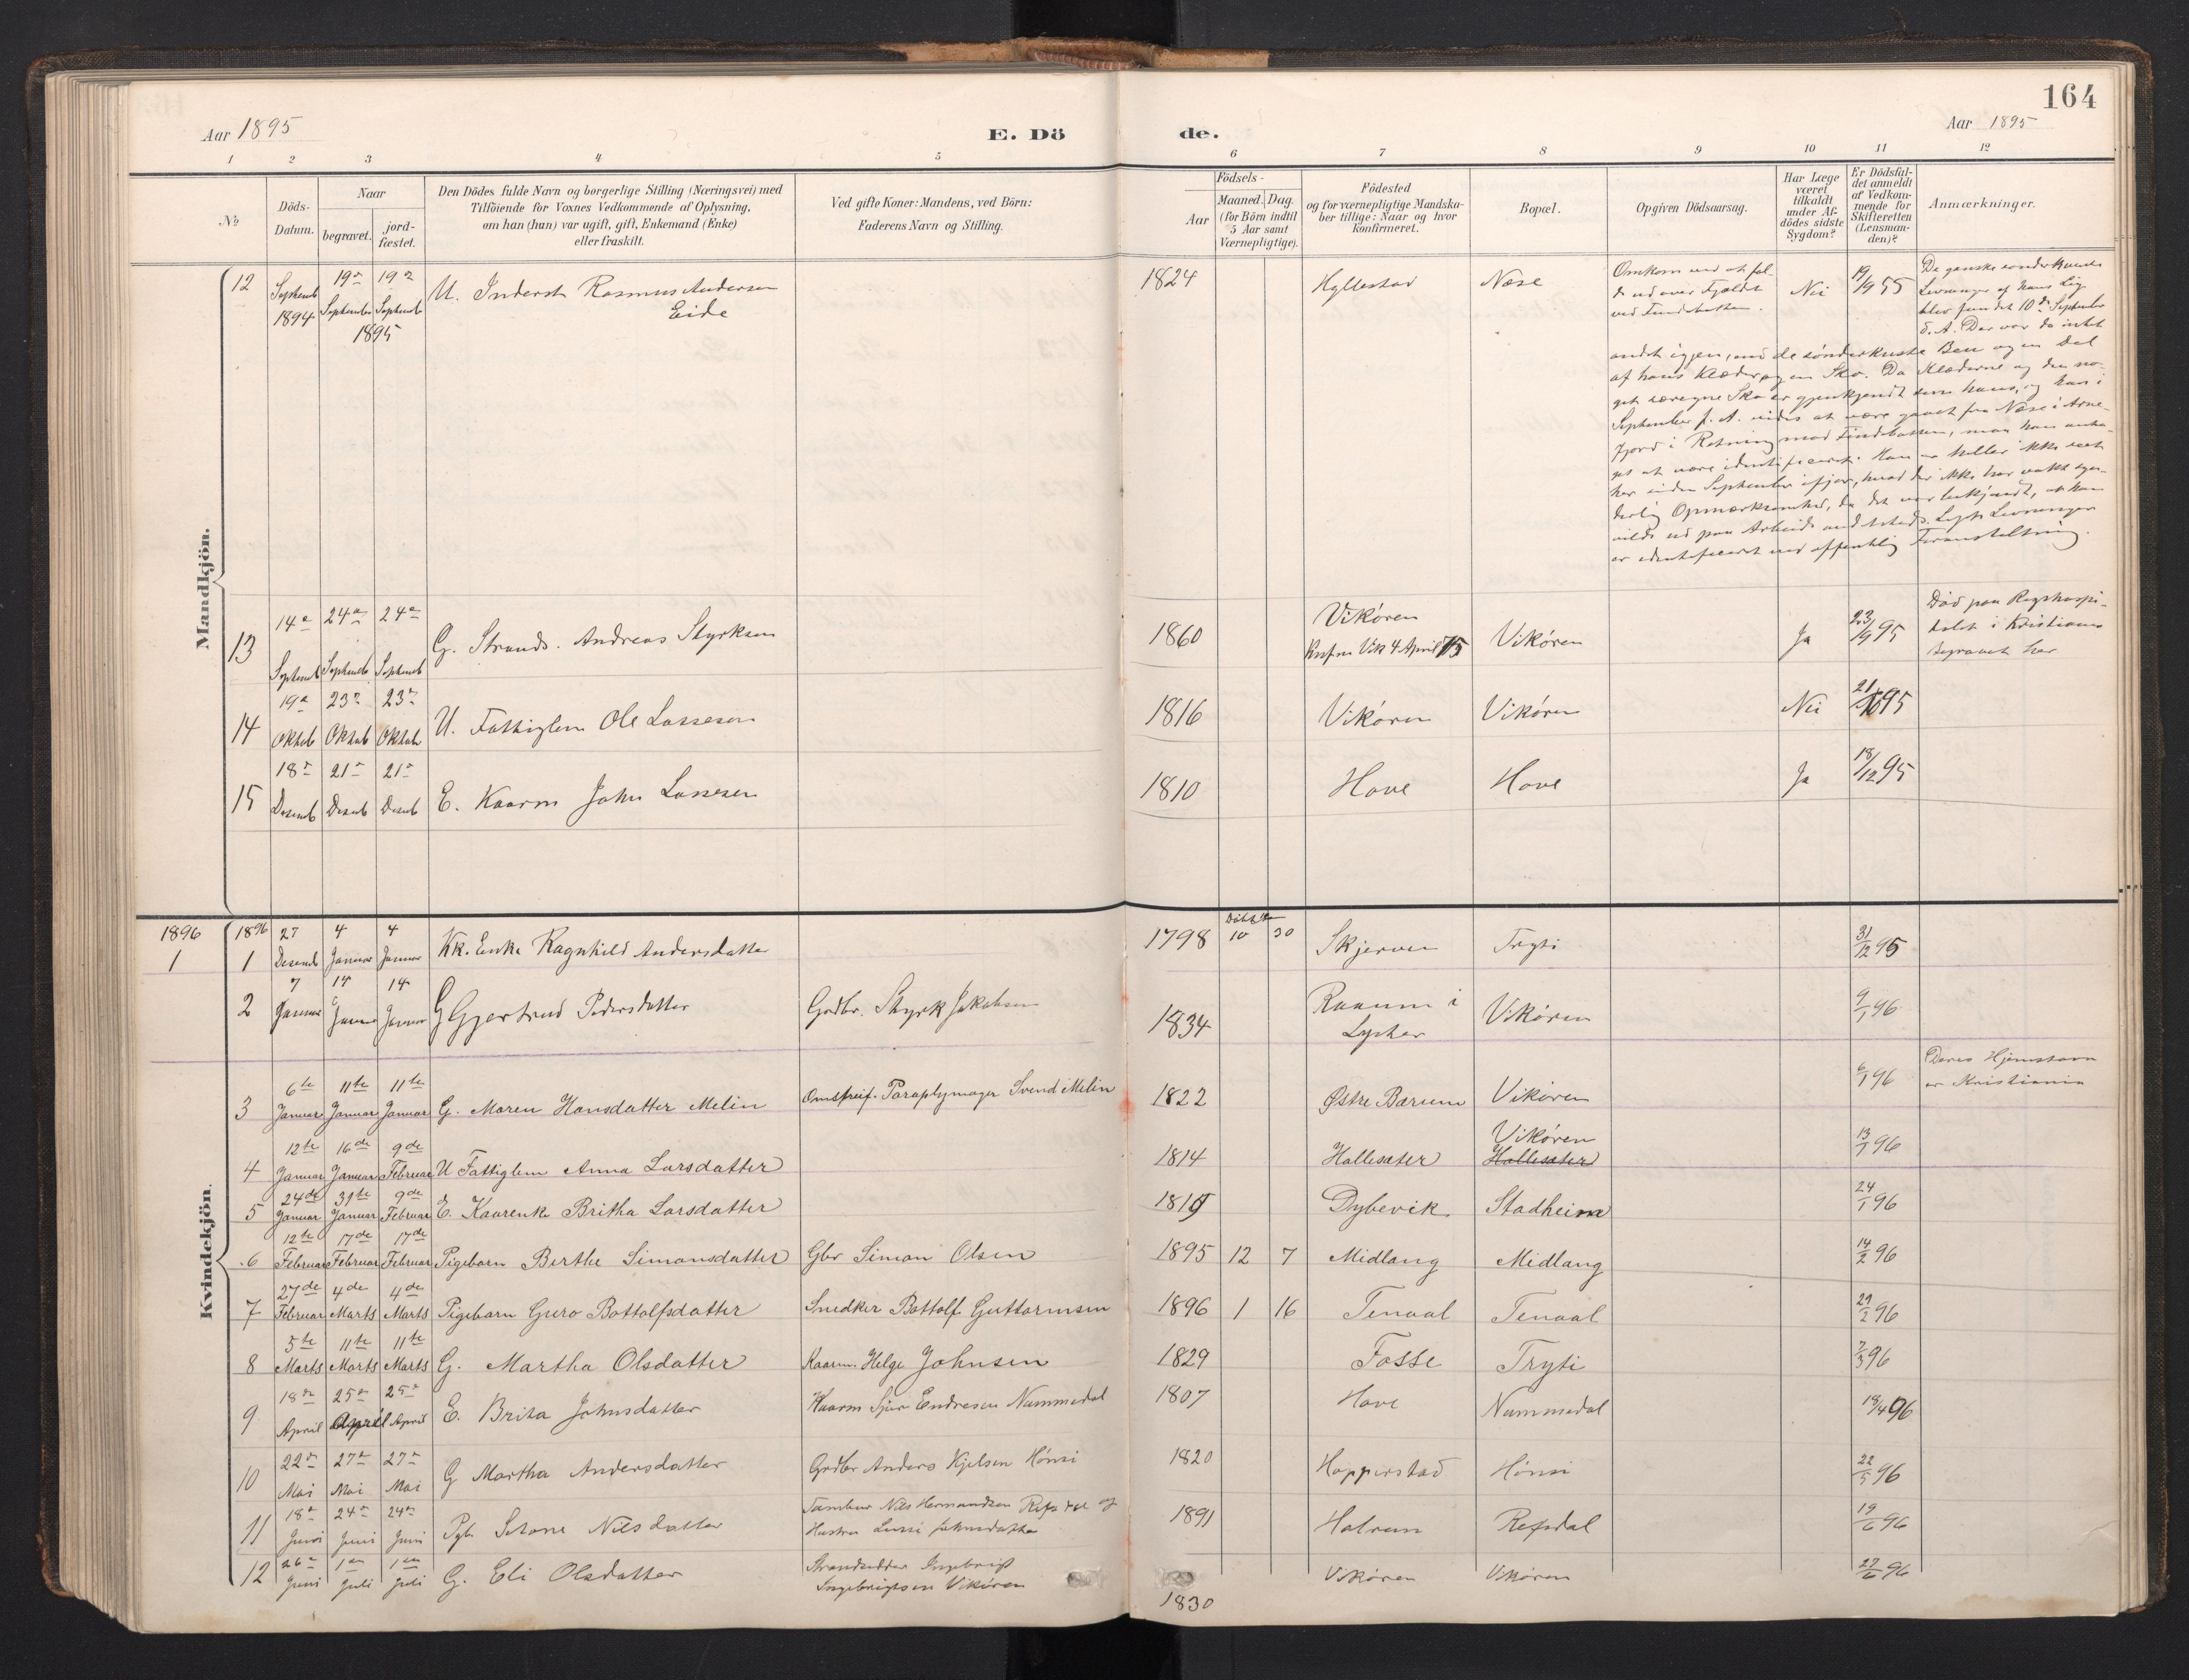 164
Aar 1895
E. Dö
de.
Aar 1895
1 2 3 4 5 6 7 8 9 10 11 12
No
Döds-
Datum.
Naar
begravet.
jord-
fæstet.
Den Dödes fulde Navn og borgerlige Stilling (Næringsvei) med
Tilföiende for Voxnes Vedkommende af Oplysning,
om han (hun) var ugift, gift, Enkemand (Enke)
eller fraskilt.
Ved gifte Koner: Mandens, ved Börn:
Faderens Navn og Stilling.
Födsels-
Aar
Maaned. Dag.
(for Börn indtil
5 Aar samt
Værnepligtige).
Födested
og for værnepligtige Mandska-
ber tillige: Naar og hvor
konfirmeret.
Bopæl.
Opgiven Dödsaarsag.
Har Læge
været
tilkaldt
under Af-
dödes sidste
Sygdom?
Er Dödsfal-
det anmeldt
af Vedkom-
mende for
Skifteretten
(Lensman-
den)?
Anmærkninger.
Mandkjön.
12 Septemb 1894 19de September 19de Septemb 1895 U. Inderst Rasmus Andersen Eide 1824 Hyllestad Næse
Omkom ved at fal-
de ud over Fjeldet
ved Findebotten.
Nei 19/9 95
De ganske sønderknuste
Levninger af hans Lig
blev fundet 10de September
d. A. Der var da intet
andet igjen, end de sønderknuste Ben og en Del
af hans Klæder og en Sko. Da Klæderne og den no-
get særegne Sko er gjenkjendt som hans, og han i
September f. A. vides at være gaaet fra Næse i Arne-
fjord i Retning mod Findebotten, maa han anta-
ges at være identificeret. Han er heller ikke seet
her siden September ifjor, hvad der ikke har vakt syn-
derlig Opmærksomhed, da det var bekjendt, at han
vilde ud paa Arbeide andetsteds. Ligets Levninger
er identificeret ved offentlig Foranstaltning.
13 14de Septemb 24de Septemb 24de Septemb G. Strands. Andreas Styrksen 1860 Vikören Konfm Vik 4 April 75 Vikören Ja 23/9 95
Död paa Rigshospi-
talet i Kristiania
begravet her
14 19de Oktob 23de Oktob 23de Oktob U. Fattiglem Ole Lassesen 1816 Vikören Vikören Nei 21/10 95
15 18de Desemb 21de Desemb 21de Desemb E. Kaarm John Lassesen 1810 Hove Hove Ja 18/12 95
Kvindekjön.
1896 1896
1 1 27 Desemb 4 Januar 4 Januar Kk. Enke Ragnhild Andersdatter 1798 Döbt 10 30 Skjerven Tryti 31/12 95
2 7 Januar 14 Januar 14 Januar G Gjertrud Pedersdatter Gaardbr. Styrk Jakobsen 1834 Raaum i Lyster Vikören 9/1 96
3 6te Januar 11te Januar 11te Januar G. Maren Hansdatter Melin Omstreif. Paraplymager Svend Melin 1822 Østre Bærum Vikören 6/1 96 Deres Hjemstavn er Kristiania
4 12te Januar 16de Januar 9de Februar U Fattiglem Anna Larsdatter 1814 Hallesæter Vikören Hallesæter 13/1 96
5 24de Januar 31te Januar 9de Februar E. Kaarenke Britha Larsdatter 1819 Dybevik Stadheim 24/1 96
6 12te Februar 17de Februar 17de Februar Pigebarn Berthe Simonsdatter Gbr Simon Olsen 1895 12 7 Midlang Midlang 14/2 96
7 27de Februar 4de Marts 4de Marts Pigebarn Guro Bottolfsdatter Snedker Bottolf Guttormsen 1896 1 16 Tenaal Tenaal 29/2 96
8 5te Marts 11te Marts 11te Marts G. Martha Olsdatter Kaarm. Helge Johnsen 1829 Fosse Tryti 7/3 96
9 18de April 25de April 25de April E. Brita Johnsdatter Kaarm Sjur Endresen Nummedal 1807 Hove Nummedal 18/4 96
10 22de Mai 27de Mai 27de Mai G Martha Andersdatter Grdbr Anders Kjelsen Hönsi 1820 Hopperstad Hönsi 22/5 96
11 18de Juni 24de Juni 24de Juni Pgb. Nilsdatter Tambur Nils Hermundsen Refsdal og Hustru Johnsdatter 1891 Refsdal 19/6 96
12 26de Juni 1ste Juli 1ste Juli G. Eli Olsdatter Strandsidder Ingebrigt Ingebrigtsen Vikören 1830 Vikören Vikören 27/6 96